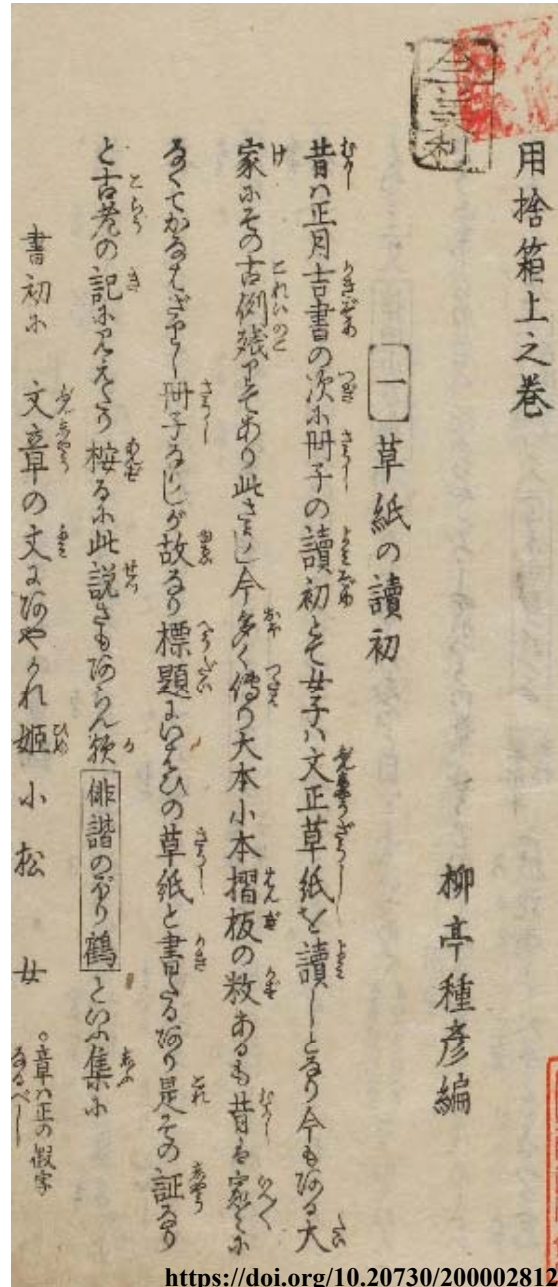 用捨箱上之巻
柳亭種彦編
一 草紙の讀初
昔ハ正月吉書の次に冊子の讀初とて女子ハ文正草紙を讀しとなり今もある大
家にその古例残りてあり此さうし今多く傳り大本小本摺板の数あるも昔は家々に
なくてかなはざりし冊子なりしが故なり標題にいはひの草紙と書たるあり是その証なり
と古老の記に見えたり按るに此説さもあらん歟俳諧のぼり鶴といふ集に
書初に 文章の文にあやかれ姫小松 女 ○章ハ正の假字
なるべし
https://doi.org/10.20730/200002812